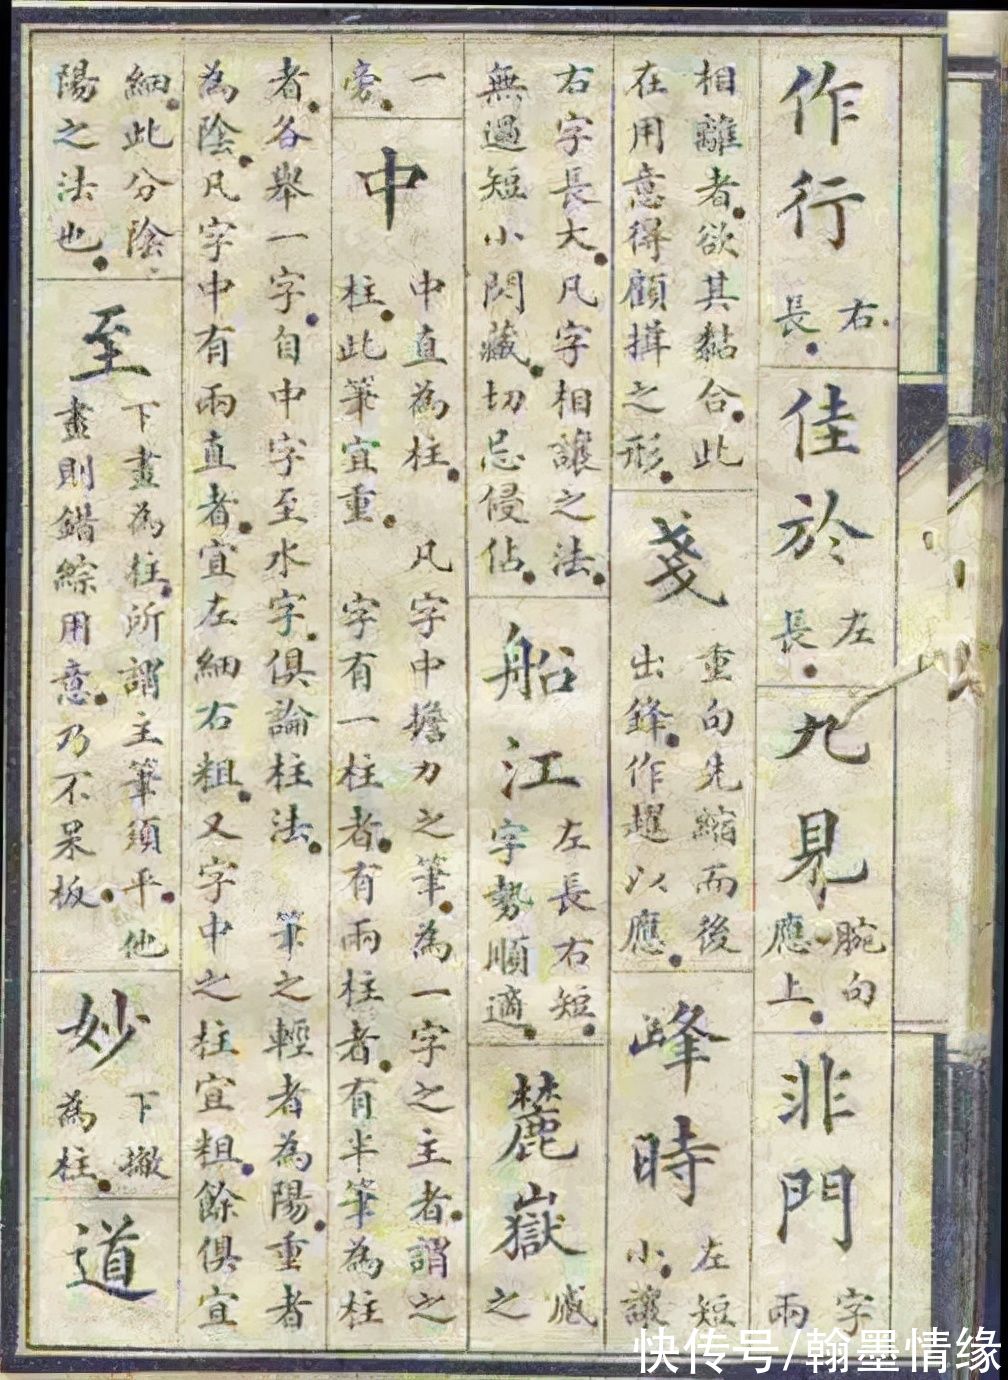 作行
右
長。
佳於
左
長。
九見
腕句
應上。
非門
字
兩
相離者。欲其黏合。此
在用意得顧揖之形。
戔
重句先縮而後
出鋒。作趯以應。
峰時
左短
小。讓
右字長大。凡字相讓之法。
無過短小閃藏。切忌侵佔。
船江
左長右短。
字勢順適。
麓嶽
之
一
旁。
中
中直為柱。
柱。此筆宜重。
凡字中擔力之筆。為一字之主者。謂之
字有一柱者。有兩柱者。有半筆為柱
者。各舉一字。自中字至水字。俱論柱法。
筆之輕者為陽。重者
為陰。凡字中有兩直者。宜左細右粗。又字中之柱宜粗。餘俱宜
細。此分陰
陽之法也。
至
下畫為柱。所謂主筆須平。他
畫則錯綜用意。乃不呆板。
妙
下撇
為柱。
道
快传号/翰墨情缘